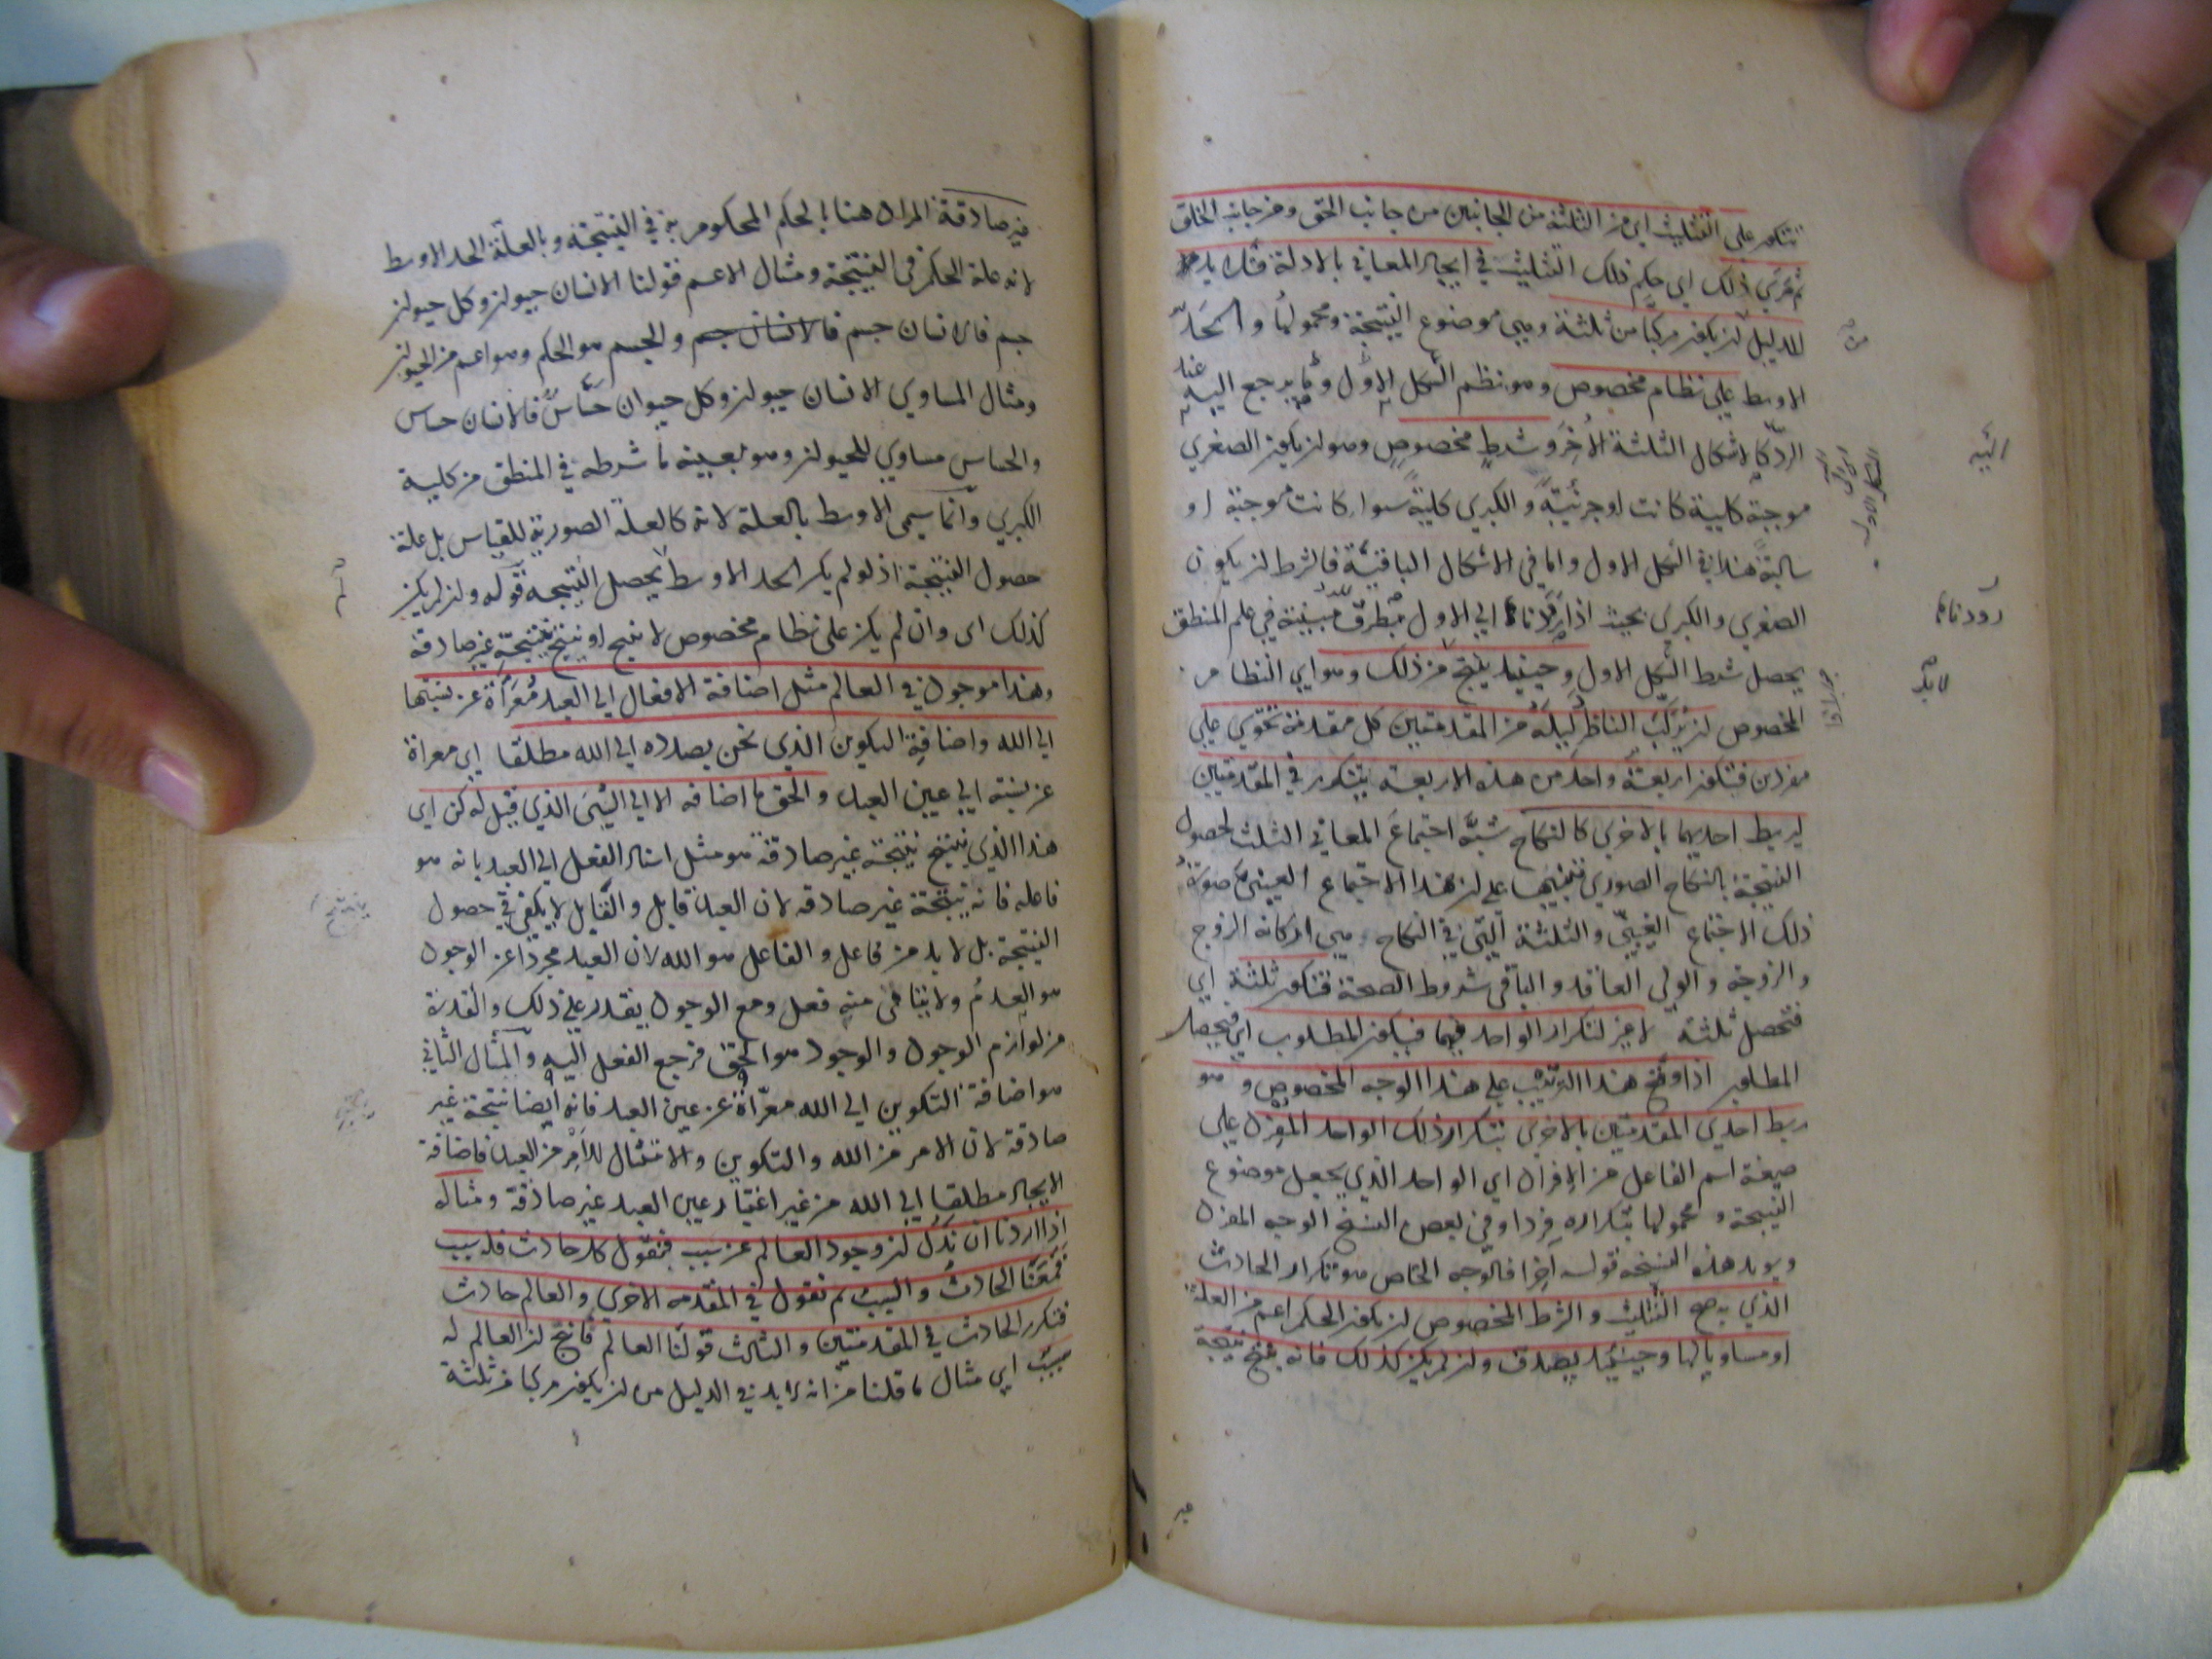 التكوين على التثليث اى من الثلثة من الجانبين من جانب الحق ومن جانب الخلق
ثم سرى ذلك اى حكم ذلك التثليث في ايجاد المعاني بالادلة فلا بد
للدليل ان يكون مركبا من ثلثة وهي موضوع النتيجة ومحمولها والحد
الاوسط على نظام مخصوص وهو نظم الشكل الاول وما يرجع اليه عند
الرد كالاشكال الثلثة الاخر وشرط مخصوص وهو ان يكون الصغرى
موجبة كلية كانت او جزئية والكبرى كلية سواء كانت موجبة او
سالبة هذا في الشكل الاول واما في الاشكال الباقية فالشرط ان يكون
الصغرى والكبرى بحيث اذا الى الاول بطرق مبينة في علم المنطق
يحصل شرط الشكل الاول وحينئذ ينتج من ذلك وهو اى النظام
المخصوص ان يركب الناظر دليله من المقدمتين كل مقدمة تحتوي على
مفردين فتكون اربعة واحد من هذه الاربعة يتكرر في المقدمتين
ليربط احديهما بالاخرى كالنكاح شبه اجتماع المعاني الثلث لحصول
النتيجة بالنكاح الصوري تنبيها على ان هذا الاجتماع العيني صورة
ذلك الاجتماع الغيبي والثلثة التي في النكاح هي اركانه الزوج
والزوجة والولي العاقد والباقي شروط الصحة فتكون ثلثة اى
فتحصل ثلثة لا غير لتكرار الواحد فيهما فيكون المطلوب اى فيحصل
المطلوب اذا وقع هذا الترتيب على هذا الوجه المخصوص وهو
ربط احدى المقدمتين بالاخرى بتكرار ذلك الواحد المفرد على
صيغة اسم الفاعل من الافراد اى الواحد الذي يجعل موضوع
النتيجة ومحمولها بتكراره فردا وفي بعض النسخ الوجه المفرد
ويؤيد هذه النسخة قوله آخرا فالوجه الخاص هو تكرار الحادث
الذي به صح التثليث والشرط المخصوص ان يكون الحكم اعم من العلة
او مساويا لها وحينئذ يصدق وان لم يكن كذلك فانه ينتج نتيجة
غير
اليه
ردّدناهما
غير صادقة المراد هنا بالحكم المحكوم به في النتيجة وبالعلة الحد الاوسط
لانه علة الحكم في النتيجة ومثال الاعم قولنا الانسان حيوان وكل حيوان
جسم فالانسان جسم فالانسان جسم والجسم هو الحكم وهو اعم من الحيوان
ومثال المساوي الانسان حيوان وكل حيوان حساس فالانسان حساس
والحساس مساوي للحيوان وهو بعينه ما شرطه في المنطق من كلية
الكبرى وانما سمى الاوسط بالعلة لانه كالعلة الصورية للقياس بل علة
حصول النتيجة اذ لو لم يكن الحد الاوسط يحصل النتيجة قوله وان لم يكن
كذلك اى وان لم يكن على نظام مخصوص لا ينتج او ينتج نتيجة غير صادقة
وهذا موجود في العالم مثل اضافة الافعال الى العبد معراة عن نسبتها
الى الله واضافة التكوين الذي نحن بصدده الى الله مطلقا اى معراة
عن نسبته الى عين العبد والحق ما اضافه الا الى الشيء الذي قيل له كن اى
هذا الذي ينتج نتيجة غير صادقة هو مثل اسناد الفعل الى العبد بانه هو
فاعله فانه نتيجة غير صادقة لان العبد قابل والقابل لا يكفي في حصول
النتيجة بل لا بد من فاعل والفاعل هو الله لان العبد مجردا عن الوجود
هو العدم ولا يتأتى منه فعل ومع الوجود يقدر على ذلك والقدرة
من لوازم الوجود والوجود هو الحق فرجع الفعل اليه والمثال الثاني
هو اضافة التكوين الى الله معراة عن عين العبد فانه ايضا نتيجة غير
صادقة لان الامر من الله والتكوين والامتثال للامر من العبد فاضافة
الايجاد مطلقا الى الله من غير اعتبار عين العبد غير صادقة ومثاله
اذا اردنا ان ندل ان وجود العالم عن سبب فنقول كل حادث فله سبب
فمعنا الحادث والسبب ثم نقول في المقدمة الاخرى والعالم حادث
فتكرر الحادث في المقدمتين والثالث قولنا العالم فانتج ان العالم له
سبب اى مثال ما قلنا من انه لا بد في الدليل من ان يكون مركبا من ثلثة